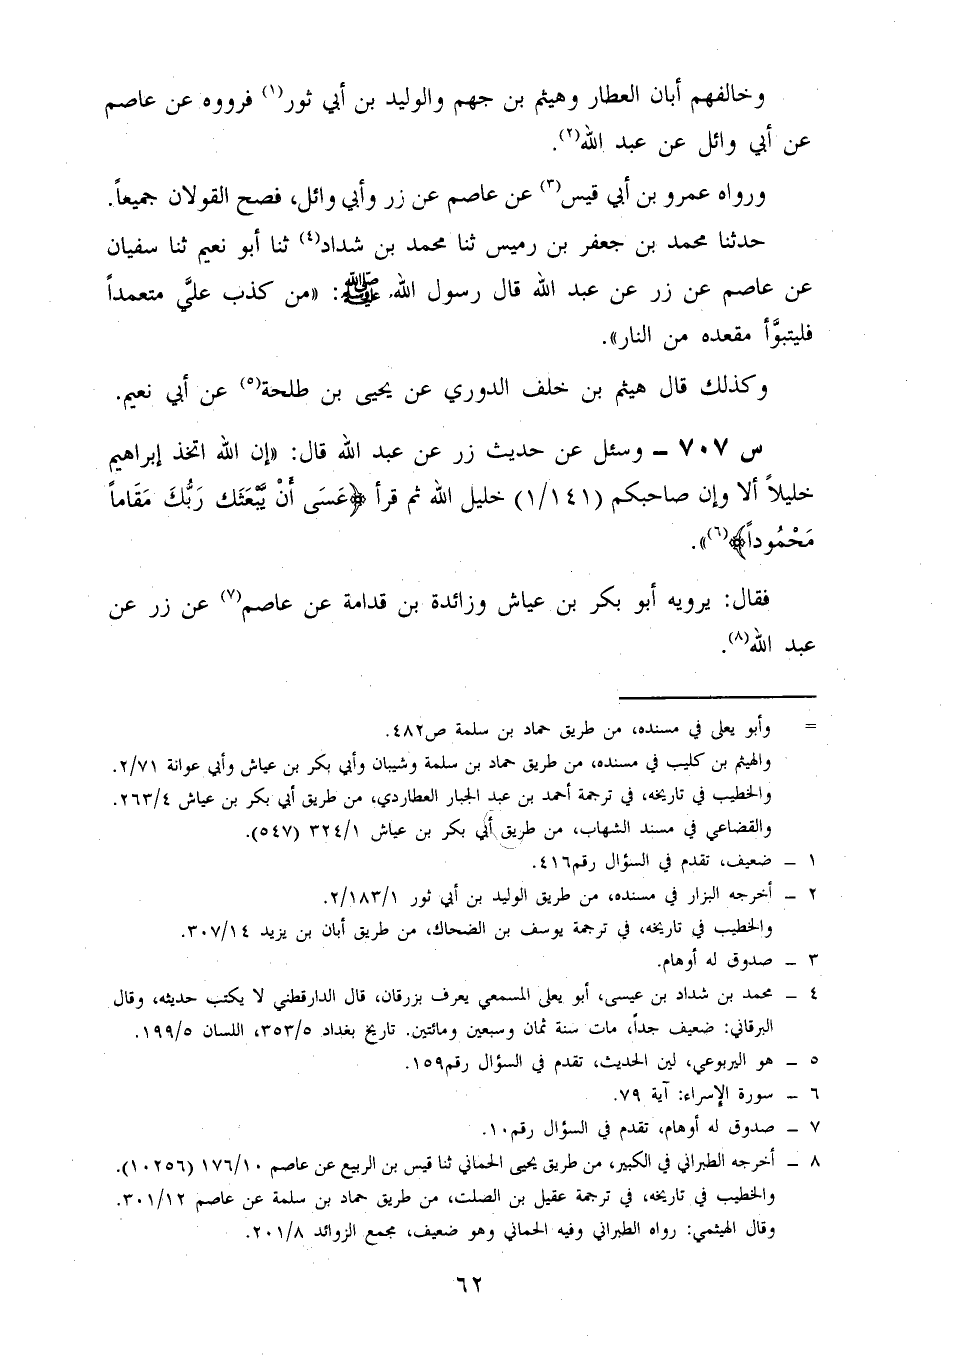 وخالفهم أبان العطار وهيثم بن جهم والوليد بن أبي ثور(١) فرووه عن عاصم
عن أبي وائل عن عبد الله(٢).
ورواه عمرو بن أبي قيس(٣) عن عاصم عن زر وأبي وائل، فصح القولان جميعاً.
حدثنا محمد بن جعفر بن رميس ثنا محمد بن شداد(٤) ثنا أبو نعيم ثنا سفيان
عن عاصم عن زر عن عبد الله قال رسول الله ﷺ: «من كذب عليَّ متعمداً
فليتبوَّأ مقعده من النار».
وكذلك قال هيثم بن خلف الدوري عن يحيى بن طلحة(٥) عن أبي نعيم.
س ٧٠٧ ـ وسئل عن حديث زر عن عبد الله قال: «إن الله اتخذ إبراهيم
خليلاً ألا وإن صاحبكم (١/١٤١) خليل الله ثم قرأ ﴿عَسَى أَنْ يَّبْعَثَك رَبُّكَ مَقَاماً
مَحْمُوداً﴾(٦)».
فقال: يرويه أبو بكر بن عياش وزائدة بن قدامة عن عاصم(٧) عن زر عن
عبد الله(٨).
= وأبو يعلى في مسنده، من طريق حماد بن سلمة ص٤٨٢.
والهيثم بن كليب في مسنده، من طريق حماد بن سلمة وشيبان وأبي بكر بن عياش وأبي عوانة ٢/٧١.
والخطيب في تاريخه، في ترجمة أحمد بن عبد الجبار العطاردي، من طريق أبي بكر بن عياش ٢٦٣/٤.
والقضاعي في مسند الشهاب، من طريق أبي بكر بن عياش ٣٢٤/١ (٥٤٧).
١ ـ ضعيف، تقدم في السؤال رقم٤١٦.
٢ ـ أخرجه البزار في مسنده، من طريق الوليد بن أبي ثور ٢/١٨٣/١.
والخطيب في تاريخه، في ترجمة يوسف بن الضحاك، من طريق أبان بن يزيد ٣٠٧/١٤.
٣ ـ صدوق له أوهام.
٤ ـ محمد بن شداد بن عيسى، أبو يعلى المسمعي يعرف بزرقان، قال الدارقطني لا يكتب حديثه، وقال
البرقاني: ضعيف جداً، مات سنة ثمان وسبعين ومائتين. تاريخ بغداد ٣٥٣/٥، اللسان ١٩٩/٥.
٥ ـ هو اليربوعي، لين الحديث، تقدم في السؤال رقم١٥٩.
٦ ـ سورة الإسراء: آية ٧٩.
٧ ـ صدوق له أوهام، تقدم في السؤال رقم١٠.
٨ ـ أخرجه الطبراني في الكبير، من طريق يحيى الحماني ثنا قيس بن الربيع عن عاصم ١٧٦/١٠ (١٠٢٥٦).
والخطيب في تاريخه، في ترجمة عقيل بن الصلت، من طريق حماد بن سلمة عن عاصم ٣٠١/١٢.
وقال الهيثمي: رواه الطبراني وفيه الحماني وهو ضعيف، مجمع الزوائد ٢٠١/٨.
٦٢